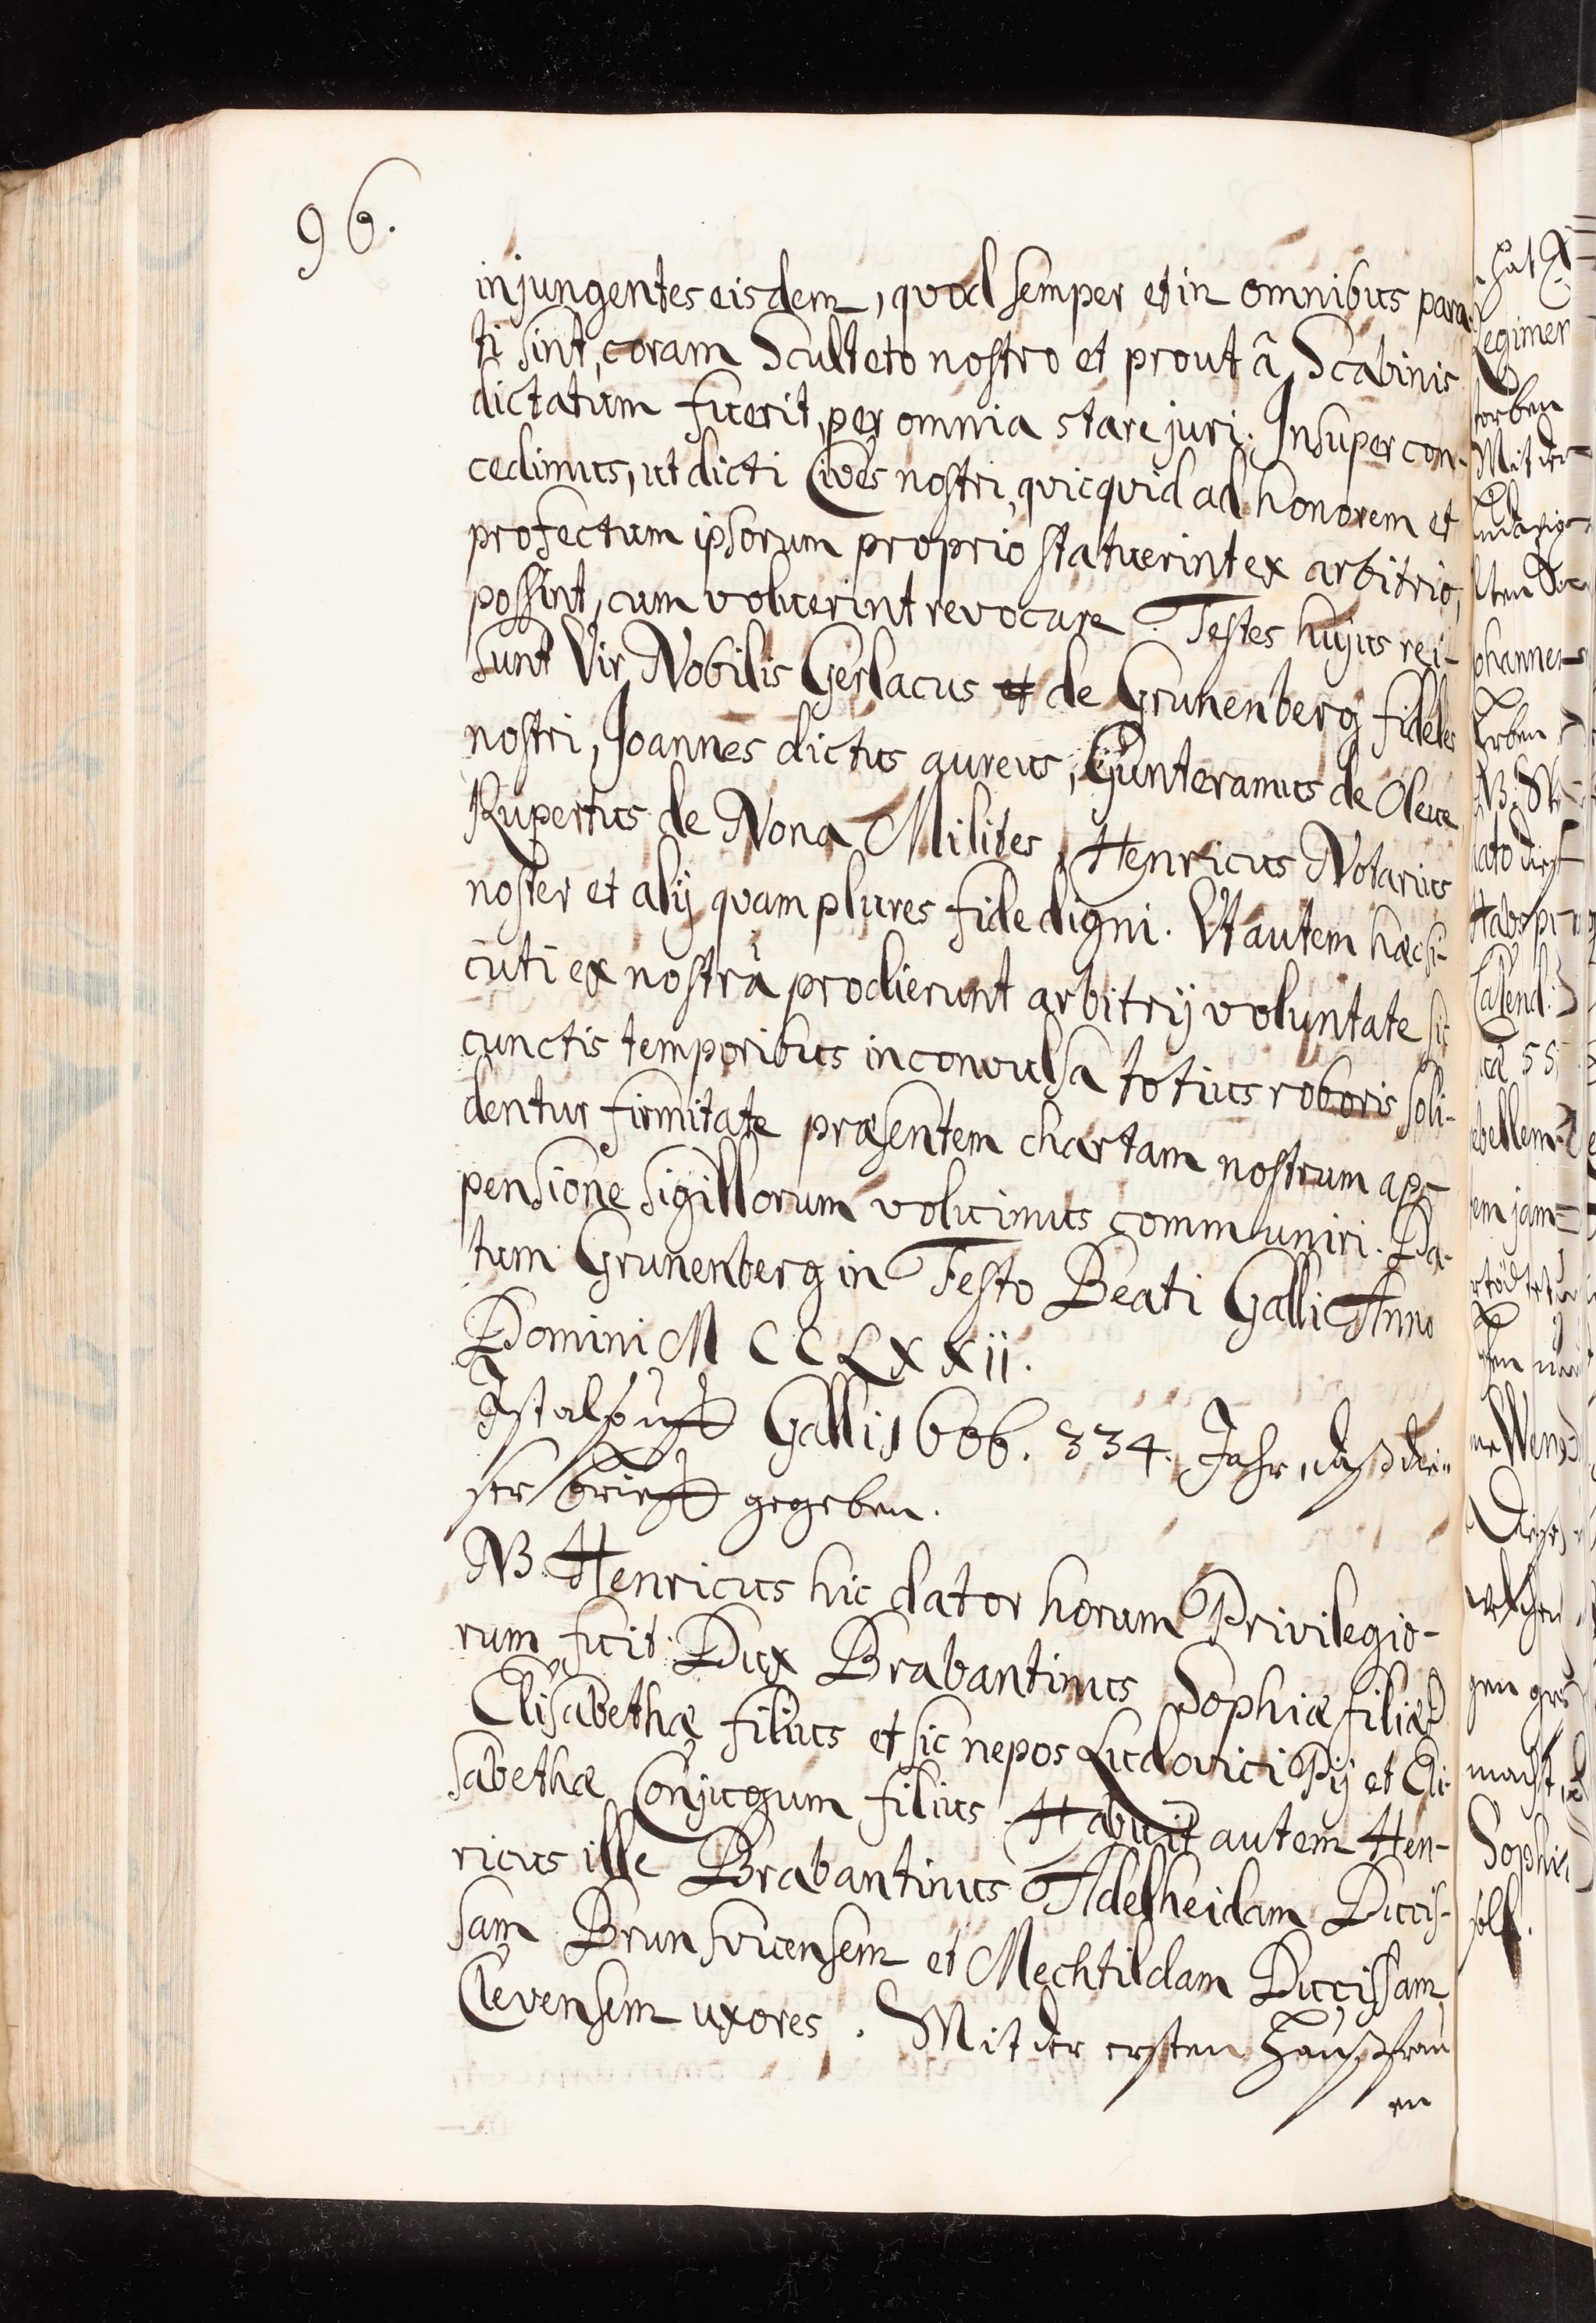 96.
injungentes eisdem, quod semper et in omnibus para-
ti sint, coram Sculteto nostro et prout â Scabinis
dictatum fuerit, per omnia stare juri. Insuper con-
cedimus, ut dicti Cives nostri, quicquid ad honorem et
profectum ipsorum proprio statuerint ex arbitrio,
possint, cum voluerint revocare. Testes hujus rei
sunt Vir Nobilis Gerlacus et de Grunenberg fideles
nostri, Joannes dictus aureus, Gunteramus de Oleve
Rupertus de Nona Milites, Henricus Notarius
noster et alij quam plures fide digni. Ut autem hæc si-
cuti ex nostrâ prodierunt arbitrij voluntate sic
cunctis temporibus inconvulsa totius roboris soli-
dentur firmitate præsentem chartam nostrum ap-
pensione sigillorum voluimus communiri. Da-
tum Grunenberg in Festo Beati Galli Anno
Domini M CC LXXII.
Ist also uff Galli 1606. 334. Jahr, daß die-
ser brieff gegeben.
NB. Henricus hic dator horum Privilegio-
rum fuit Dux Brabantinus Sophiæ filiæ
Elisabethæ filius et sic nepos Ludovici Pij et Eli-
sabethæ Conjugum filius. Habuit autem Hen-
ricus ille Brabantinus Adelheidam Duccis-
sam Brunsvicensem et Mechtildam Duccissam
Clevensem uxores. Mit der ersten Haußfrau
en
hat
Regimen
torben
Mit der
lten
ohannes
Erben
NB.
dato
Calend:
55
ebellem
em jam
Wen
gen
macht,
Sophi